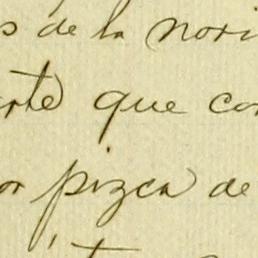 s de la nori
rte que con
or pizca de